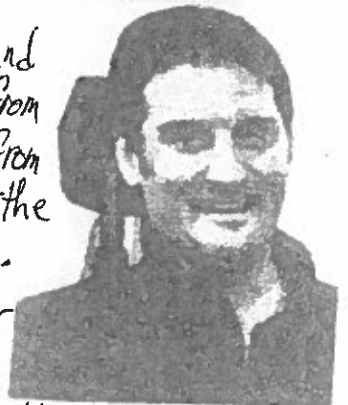 nd
from
from
the
.